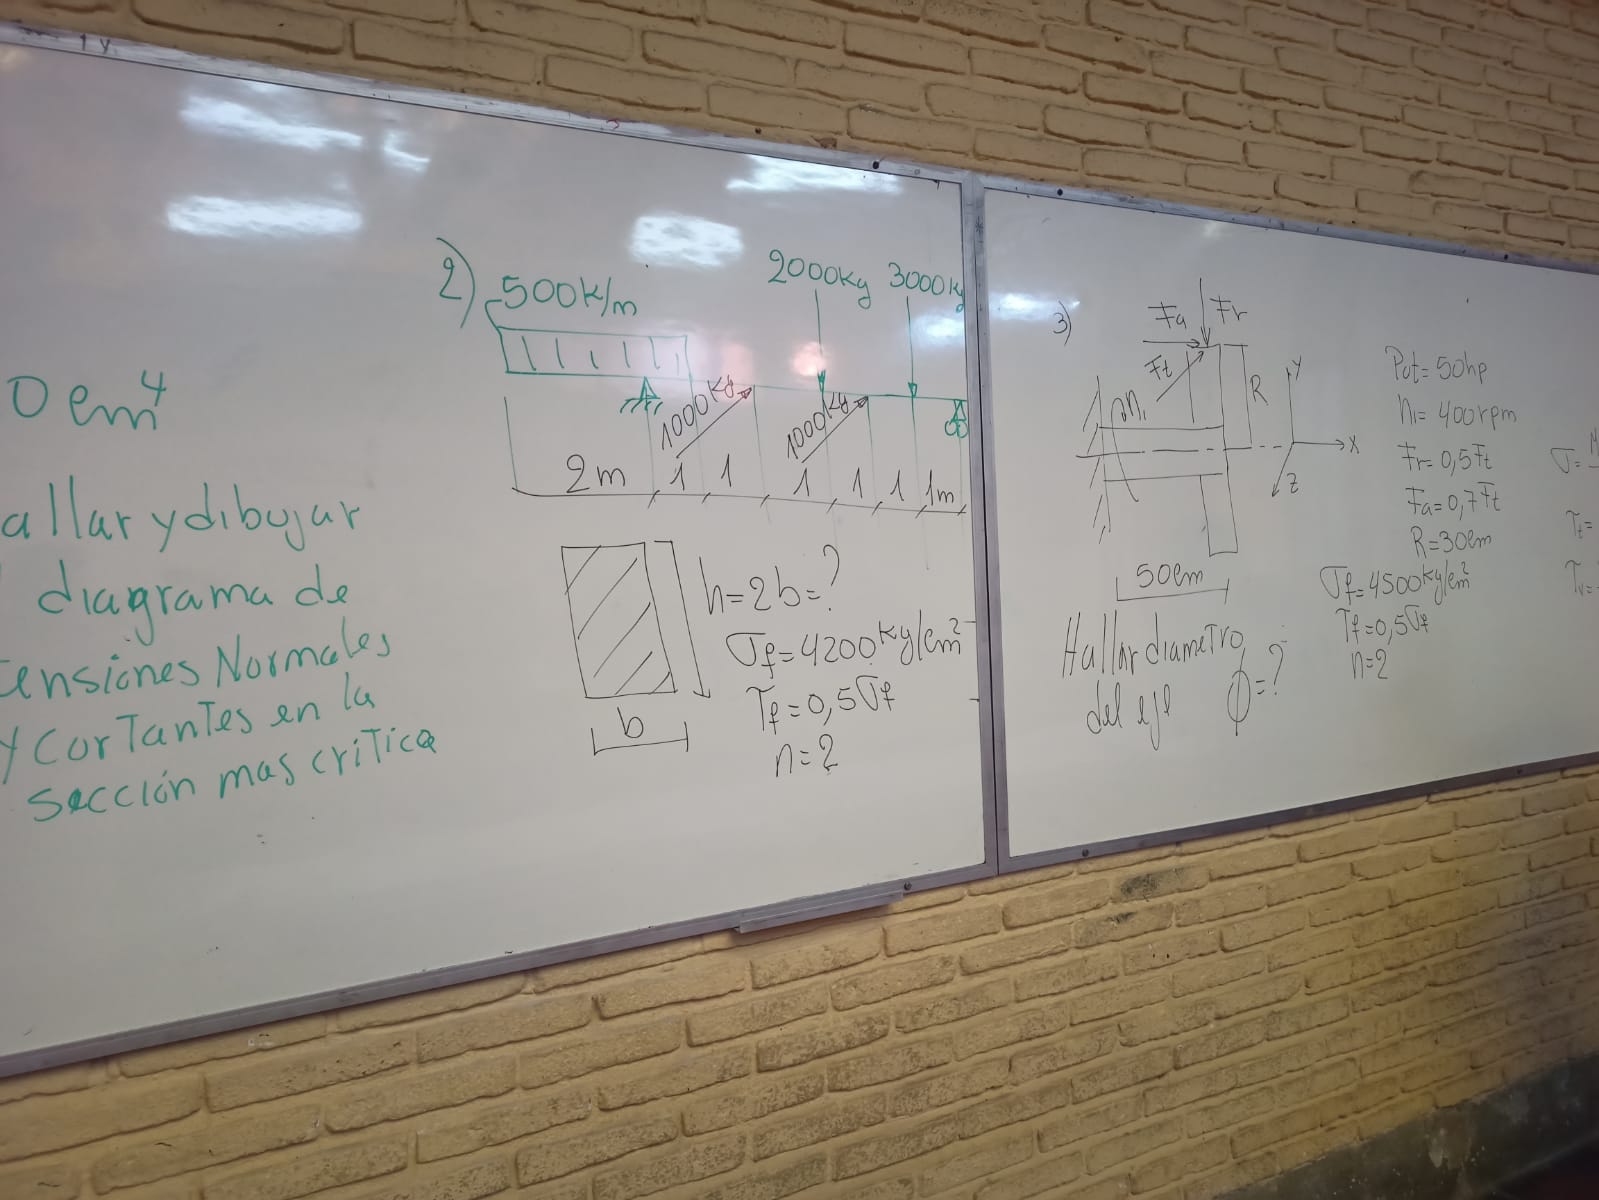 0 cm⁴
allar y dibujar
diagrama de
Tensiones Normales
y Cortantes en la
sección mas critica
2)
500K/m
2000Kg
3000Kg
1000Kg
1000Kg
2m 1 1 1 1 1 1m
h=2b=?
σf=4200Kg/cm²
τf=0,5σf
n=2
b
3)
Fa
Fr
Ft
n₁
R
Y
X
Z
50cm
Hallar diametro
del eje ϕ=?
Pot=50hp
n₁=400rpm
Fr=0,5Ft
Fa=0,7Ft
R=30cm
σf=4500Kg/cm²
τf=0,5σf
n=2
σ=
τt=
τv=